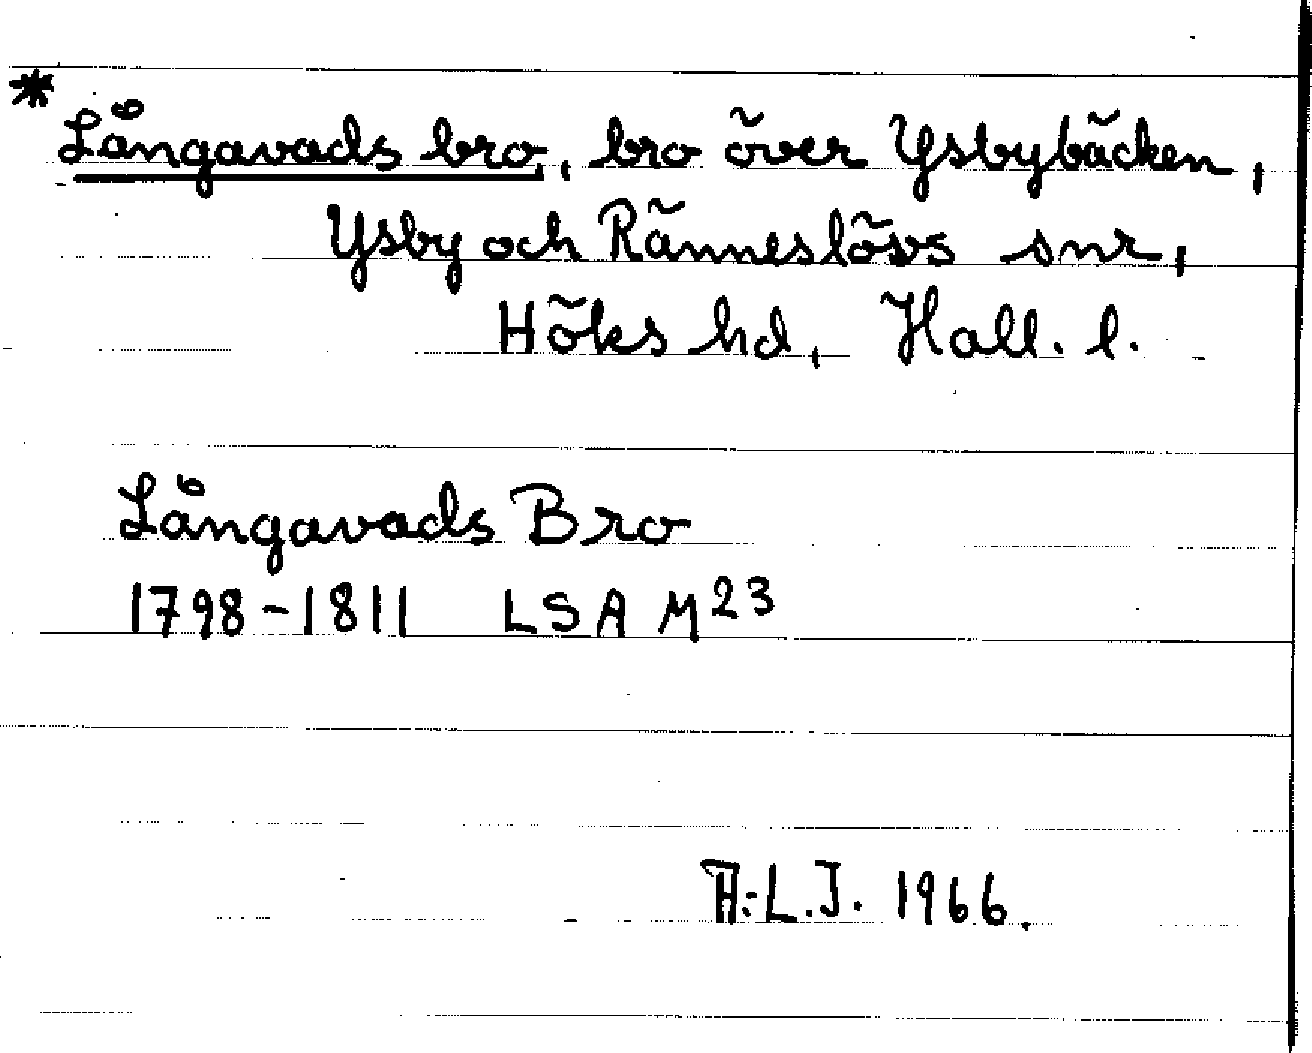 * Långavads bro, bro över Ysbybäcken,
Ysby och Ränneslövs snr,
Höks hd, Hall. l.
Långavads Bro
1798-1811 LSA M23
A-L.J. 1966.